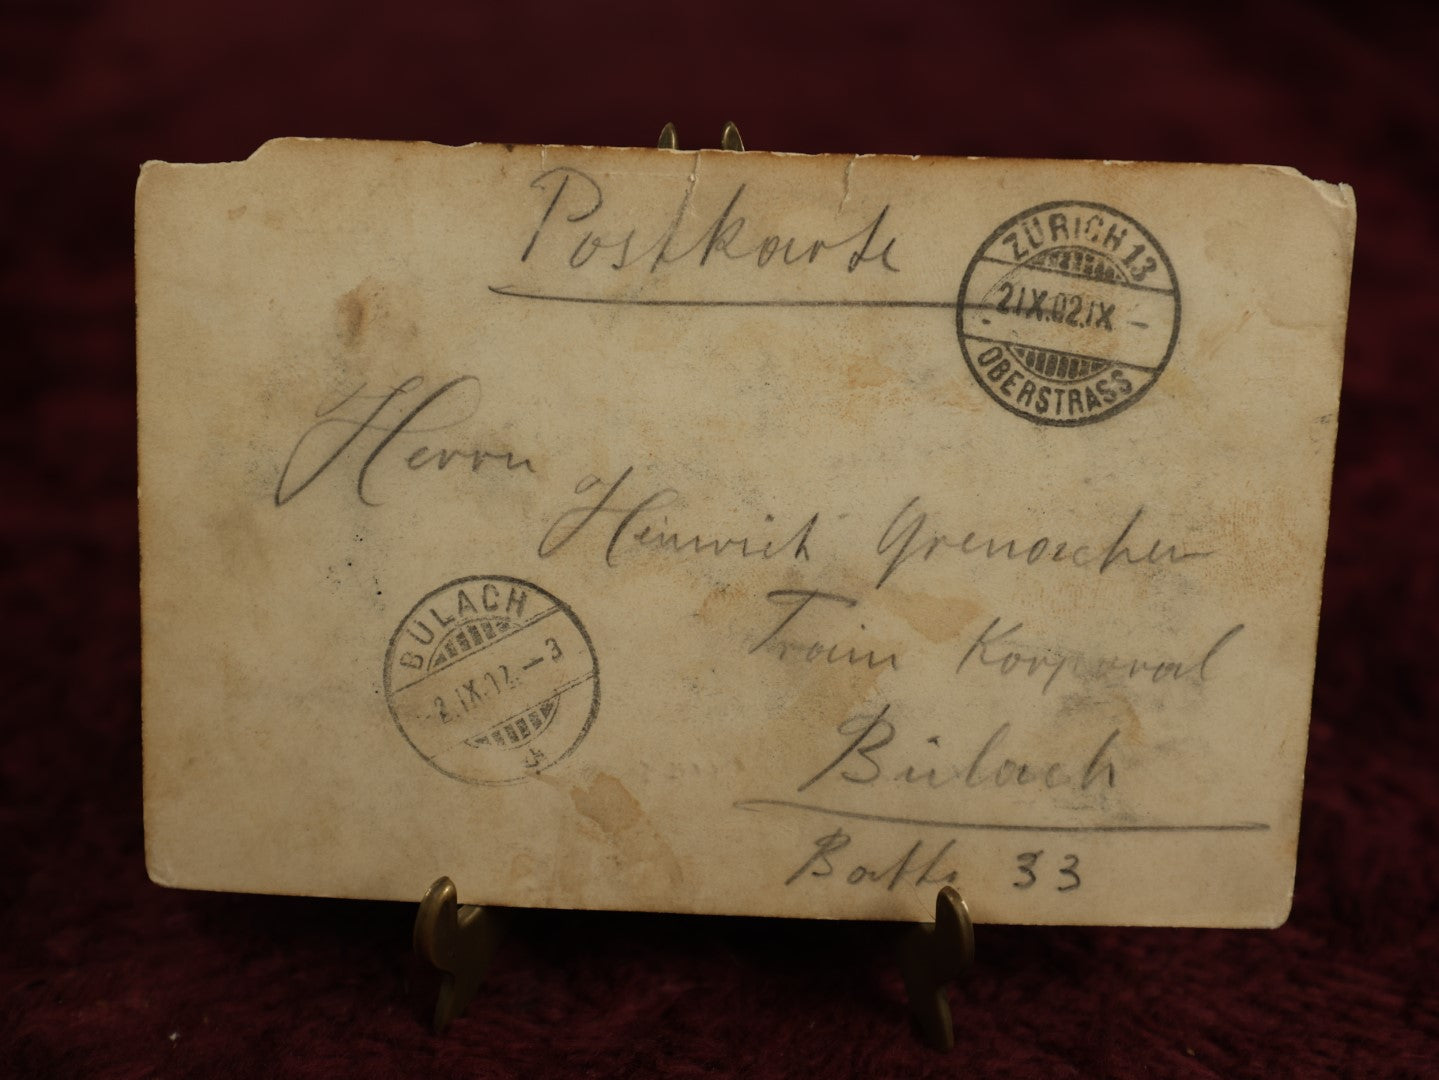 Postkarte
ZÜRICH 13
2.IX.02.IX –
OBERSTRASS
Herrn
Heinrich Grenacher
Train Korporal
Bülach
Batt. 33
BÜLACH
2.IX.02.–3